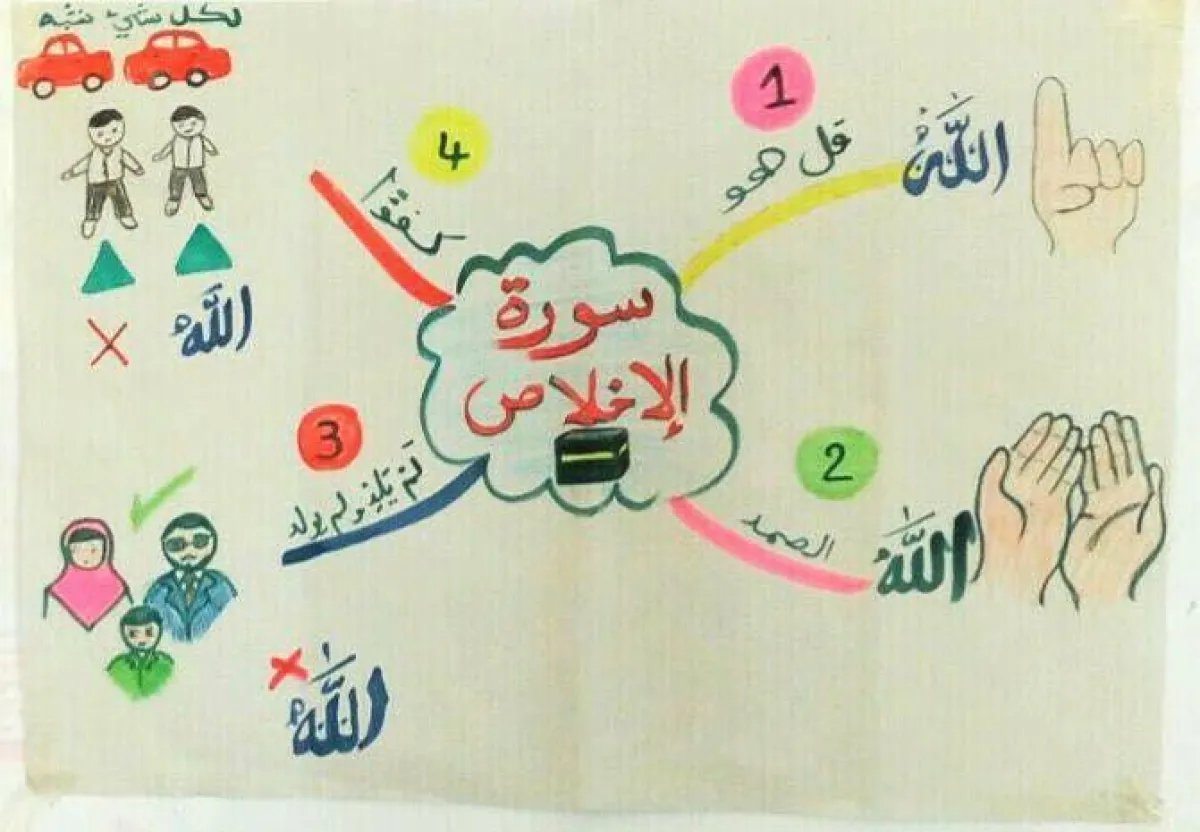 سورة
الإخلاص
1
قل هو
اللَّهُ
2
الصمد
اللَّهُ
3
لَمْ يَلِدْ ولم يولد
اللَّهُ
4
كفُوًا
لكل شيئ شبه
اللَّهُ